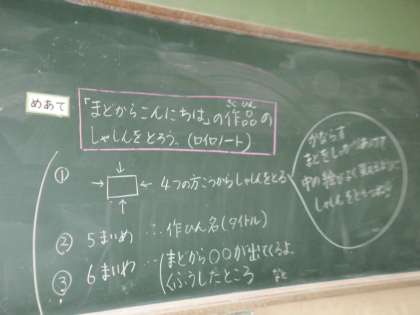 めあて
「まどからこんにちは」の作品の
さくひん
しゃしんをとろう。(ロイロノート)
① 4つの方こうからしゃしんをとる
かならず
まどをしっかりあけて
中の絵がよく見えるように
しゃしんをとろうね!!
② 5まいめ…作ひん名(タイトル)
③ 6まいめ まどから〇〇が出てくるよ
くふうしたところ など